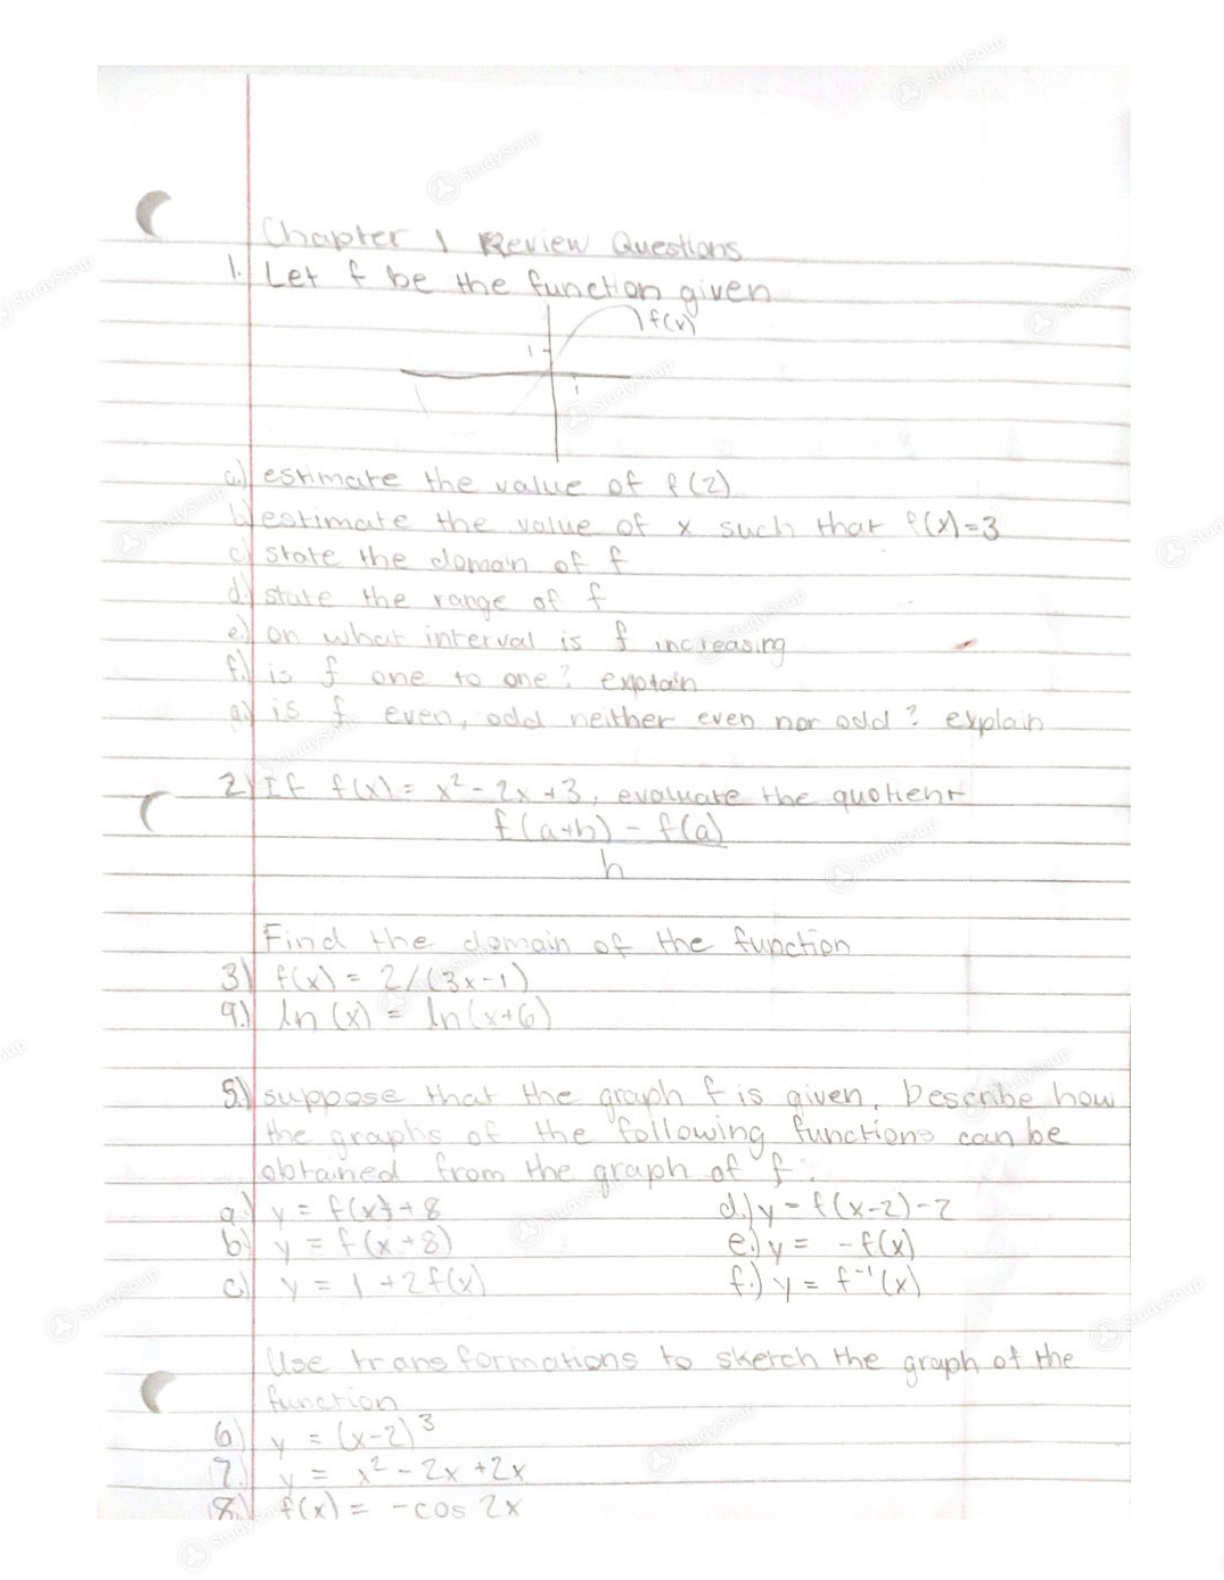 Chapter 1 Review Questions
1. Let f be the function given
f(x)
1
1
a.) estimate the value of f(2)
b.) estimate the value of x such that f(x)=3
c.) state the domain of f
d.) state the range of f
e.) on what interval is f increasing
f.) is f one to one? explain
g.) is f even, odd neither even nor odd? explain
2.) If f(x) = x² - 2x + 3, evaluate the quotient
f(a+h) - f(a)
h
Find the domain of the function
3.) f(x) = 2/(3x-1)
9.) ln(x) = ln(x+6)
5.) suppose that the graph f is given. Describe how
the graphs of the following functions can be
obtained from the graph of f.
a.) y = f(x) + 8 d.) y = f(x-2)-2
b.) y = f(x+8) e.) y = -f(x)
c.) y = 1 + 2f(x) f.) y = f⁻¹(x)
Use transformations to sketch the graph of the
function
6.) y = (x-2)³
7.) y = x² - 2x + 2x
8.) f(x) = -cos 2x
StudySoup